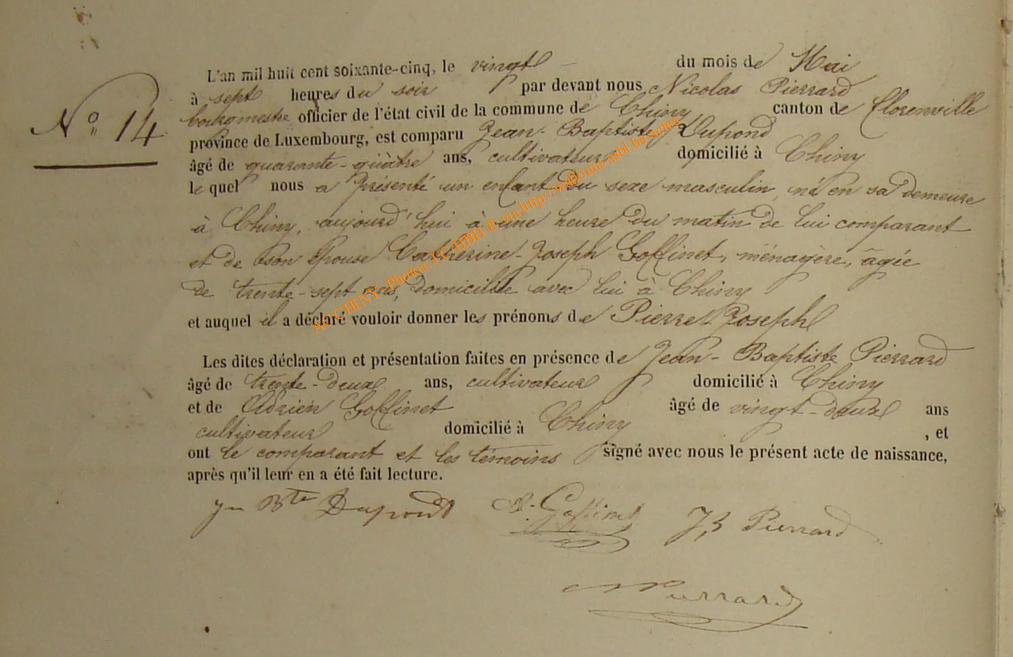 N° 14
L'an mil huit cent soixante-cinq, le vingt du mois de Mai
à sept heures du soir par devant nous Nicolas Pierrard
bourgmestre officier de l'état civil de la commune de Chiny canton de Florenville
province de Luxembourg, est comparu Jean-Baptiste Dupond
âgé de quarante-quatre ans, cultivateur domicilié à Chiny
lequel nous a présenté un enfant du sexe masculin, né en sa demeure
à Chiny, aujourd'hui à une heure du matin de lui comparant
et de son épouse Catherine-Joseph Goffinet, ménagère, âgée
de trente-sept ans, domiciliée avec lui à Chiny
et auquel il a déclaré vouloir donner les prénoms de Pierre-Joseph
Les dites déclaration et présentation faites en présence de Jean-Baptiste Pierrard
âgé de trente-deux ans, cultivateur domicilié à Chiny
et de Adrien Goffinet âgé de vingt-deux ans
cultivateur domicilié à Chiny , et
ont le comparant et les témoins signé avec nous le présent acte de naissance,
après qu'il leur en a été fait lecture.
Jn Bte Dupont A. Goffinet JB Pierrard
N Pierrard